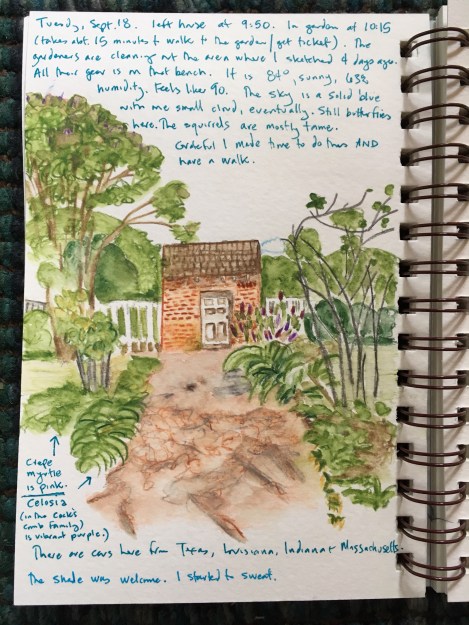 Tuesday, Sept. 18. left house at 9:50. In garden at 10:15
(takes abt. 15 minutes to walk to the garden/get ticket). The
gardeners are cleaning out the area where I sketched 4 days ago.
All their gear is on that bench. It is 84°, sunny, 63%
humidity. Feels like 90. The sky is a solid blue
with one small cloud, eventually. Still butterflies
here. The squirrels are mostly tame.
Grateful I made time to do this AND
have a walk.
Crepe
myrtle
is pink.
Celosia
(in the Cock's
Comb Family)
is vibrant purple.)
There are cars here from Texas, Louisiana, Indiana + Massachusetts.
The shade was welcome. I started to sweat.